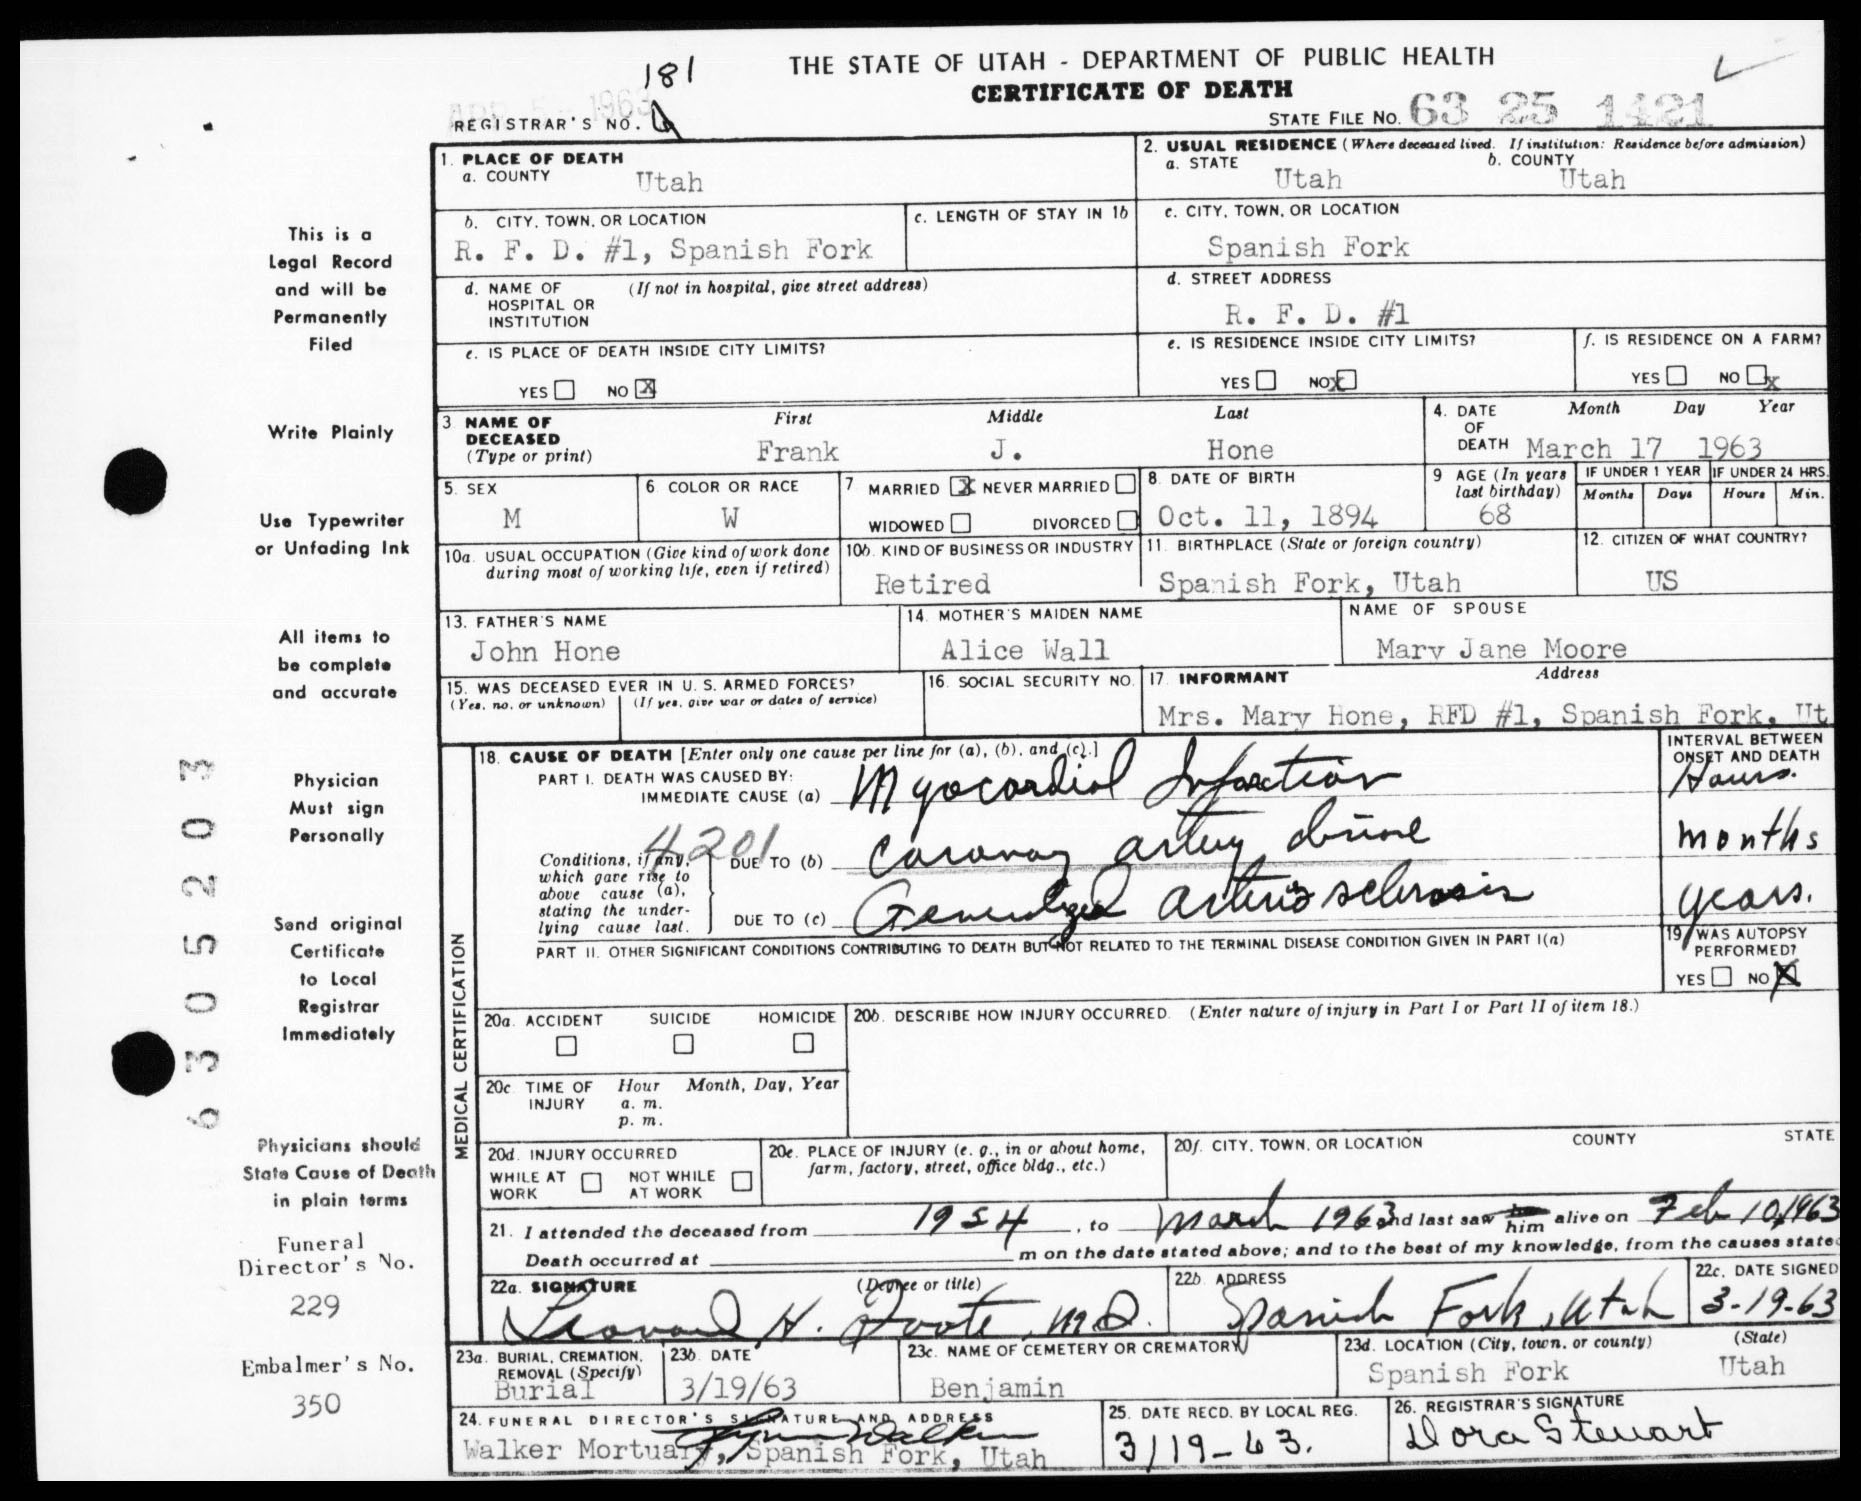 181
THE STATE OF UTAH - DEPARTMENT OF PUBLIC HEALTH
CERTIFICATE OF DEATH
APR 5 - 1963
REGISTRAR'S NO.
STATE FILE NO. 63 25 1421
1. PLACE OF DEATH
a. COUNTY Utah
2. USUAL RESIDENCE (Where deceased lived. If institution: Residence before admission)
a. STATE Utah b. COUNTY Utah
b. CITY, TOWN, OR LOCATION
R. F. D. #1, Spanish Fork
c. LENGTH OF STAY IN 1b
c. CITY, TOWN, OR LOCATION
Spanish Fork
d. NAME OF HOSPITAL OR INSTITUTION (If not in hospital, give street address)
d. STREET ADDRESS
R. F. D. #1
e. IS PLACE OF DEATH INSIDE CITY LIMITS?
YES NO X
e. IS RESIDENCE INSIDE CITY LIMITS?
YES NO X
f. IS RESIDENCE ON A FARM?
YES NO X
3 NAME OF DECEASED (Type or print)
First Middle Last
Frank J. Hone
4. DATE OF DEATH
Month Day Year
March 17 1963
5. SEX
M
6 COLOR OR RACE
W
7 MARRIED X NEVER MARRIED
WIDOWED DIVORCED
8. DATE OF BIRTH
Oct. 11, 1894
9 AGE (In years last birthday)
68
IF UNDER 1 YEAR
Months Days
IF UNDER 24 HRS.
Hours Min.
10a. USUAL OCCUPATION (Give kind of work done during most of working life, even if retired)
10b. KIND OF BUSINESS OR INDUSTRY
Retired
11. BIRTHPLACE (State or foreign country)
Spanish Fork, Utah
12. CITIZEN OF WHAT COUNTRY?
US
13. FATHER'S NAME
John Hone
14. MOTHER'S MAIDEN NAME
Alice Wall
NAME OF SPOUSE
Mary Jane Moore
15. WAS DECEASED EVER IN U. S. ARMED FORCES?
(Yes, no, or unknown) (If yes, give war or dates of service)
16. SOCIAL SECURITY NO.
17. INFORMANT Address
Mrs. Mary Hone, RFD #1, Spanish Fork, Ut
MEDICAL CERTIFICATION
18. CAUSE OF DEATH [Enter only one cause per line for (a), (b), and (c).]
PART I. DEATH WAS CAUSED BY:
IMMEDIATE CAUSE (a) Myocardial Infarction
INTERVAL BETWEEN ONSET AND DEATH
Hours.
4201
Conditions, if any, which gave rise to above cause (a), stating the underlying cause last.
DUE TO (b) Coronary artery disease
months
DUE TO (c) Generalized arteriosclerosis
years.
PART II. OTHER SIGNIFICANT CONDITIONS CONTRIBUTING TO DEATH BUT NOT RELATED TO THE TERMINAL DISEASE CONDITION GIVEN IN PART I(a)
19. WAS AUTOPSY PERFORMED?
YES NO X
20a. ACCIDENT SUICIDE HOMICIDE
20b. DESCRIBE HOW INJURY OCCURRED. (Enter nature of injury in Part I or Part II of item 18.)
20c. TIME OF INJURY Hour Month, Day, Year
a. m.
p. m.
20d. INJURY OCCURRED
WHILE AT WORK NOT WHILE AT WORK
20e. PLACE OF INJURY (e. g., in or about home, farm, factory, street, office bldg., etc.)
20f. CITY, TOWN, OR LOCATION COUNTY STATE
21. I attended the deceased from 1954, to March 1963 and last saw him alive on Feb 10, 1963
Death occurred at m on the date stated above; and to the best of my knowledge, from the causes state
22a. SIGNATURE (Degree or title)
Leonard H. Foote, M.D.
22b. ADDRESS
Spanish Fork, Utah
22c. DATE SIGNED
3-19-63
23a. BURIAL, CREMATION, REMOVAL (Specify)
Burial
23b. DATE
3/19/63
23c. NAME OF CEMETERY OR CREMATORY
Benjamin
23d. LOCATION (City, town, or county) (State)
Spanish Fork Utah
24. FUNERAL DIRECTOR'S SIGNATURE AND ADDRESS
Walker Mortuary, Spanish Fork, Utah
25. DATE RECD. BY LOCAL REG.
3/19-63.
26. REGISTRAR'S SIGNATURE
Dora Stewart
This is a
Legal Record
and will be
Permanently
Filed
Write Plainly
Use Typewriter
or Unfading Ink
All items to
be complete
and accurate
Physician
Must sign
Personally
Send original
Certificate
to Local
Registrar
Immediately
Physicians should
State Cause of Death
in plain terms
Funeral
Director's No.
229
Embalmer's No.
350
6305203